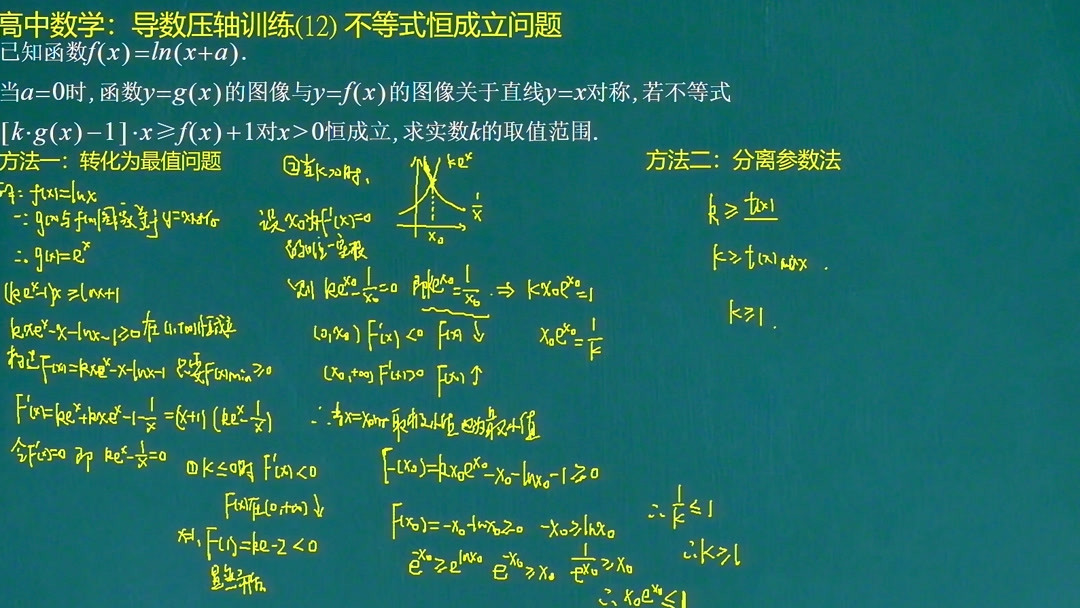 高中数学：导数压轴训练(12) 不等式恒成立问题
已知函数f(x)=ln(x+a).
当a=0时,函数y=g(x)的图像与y=f(x)的图像关于直线y=x对称,若不等式
[k·g(x)-1]·x≥f(x)+1对x>0恒成立,求实数k的取值范围.
方法一：转化为最值问题
f(x)=lnx
∴g(x)=e^x
(ke^x-1)x≥lnx+1
kxe^x-x-lnx-1≥0在(1,+∞)恒成立
构造F(x)=kxe^x-x-lnx-1 只需F(x)min≥0
F'(x)=ke^x+kxe^x-1-1/x=(x+1)(ke^x-1/x)
令F'(x)=0 即 ke^x-1/x=0
①k≤0时 F'(x)<0
F(x)在(0,+∞)↓
x=1, F(1)=ke-2<0
显然不成立
②当k>0时,
ke^x
1/x
x₀
设x₀为F'(x)=0
的唯一实根
则 ke^x₀-1/x₀=0 即ke^x₀=1/x₀ ⇒ kx₀e^x₀=1
(0,x₀) F'(x)<0 F(x)↓ x₀e^x₀=1/k
(x₀,+∞) F'(x)>0 F(x)↑
∴当x=x₀时取极小值也为最小值
F(x₀)=kx₀e^x₀-x₀-lnx₀-1≥0
F(x₀)=-x₀-lnx₀≥0 -x₀≥lnx₀
e^-x₀≥e^lnx₀ e^-x₀≥x₀ 1/e^x₀≥x₀
∴x₀e^x₀≤1
∴1/k≤1
∴k≥1
方法二：分离参数法
k≥t(x)
k≥t(x)max.
k≥1.